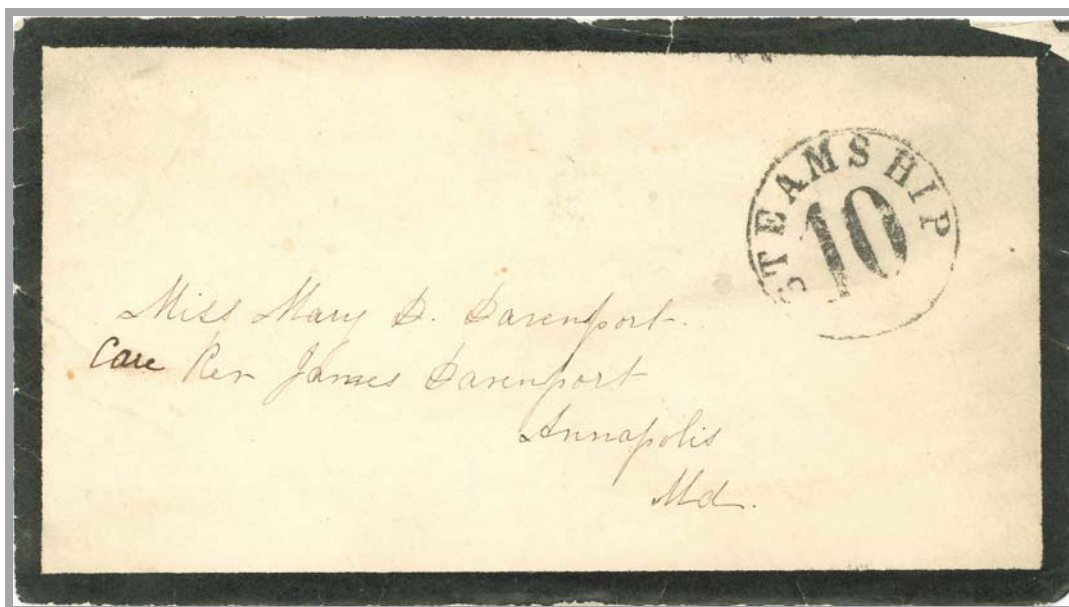 STEAMSHIP
10
Miss Mary D. Davenport.
Care Rev James Davenport
Annapolis
Md.